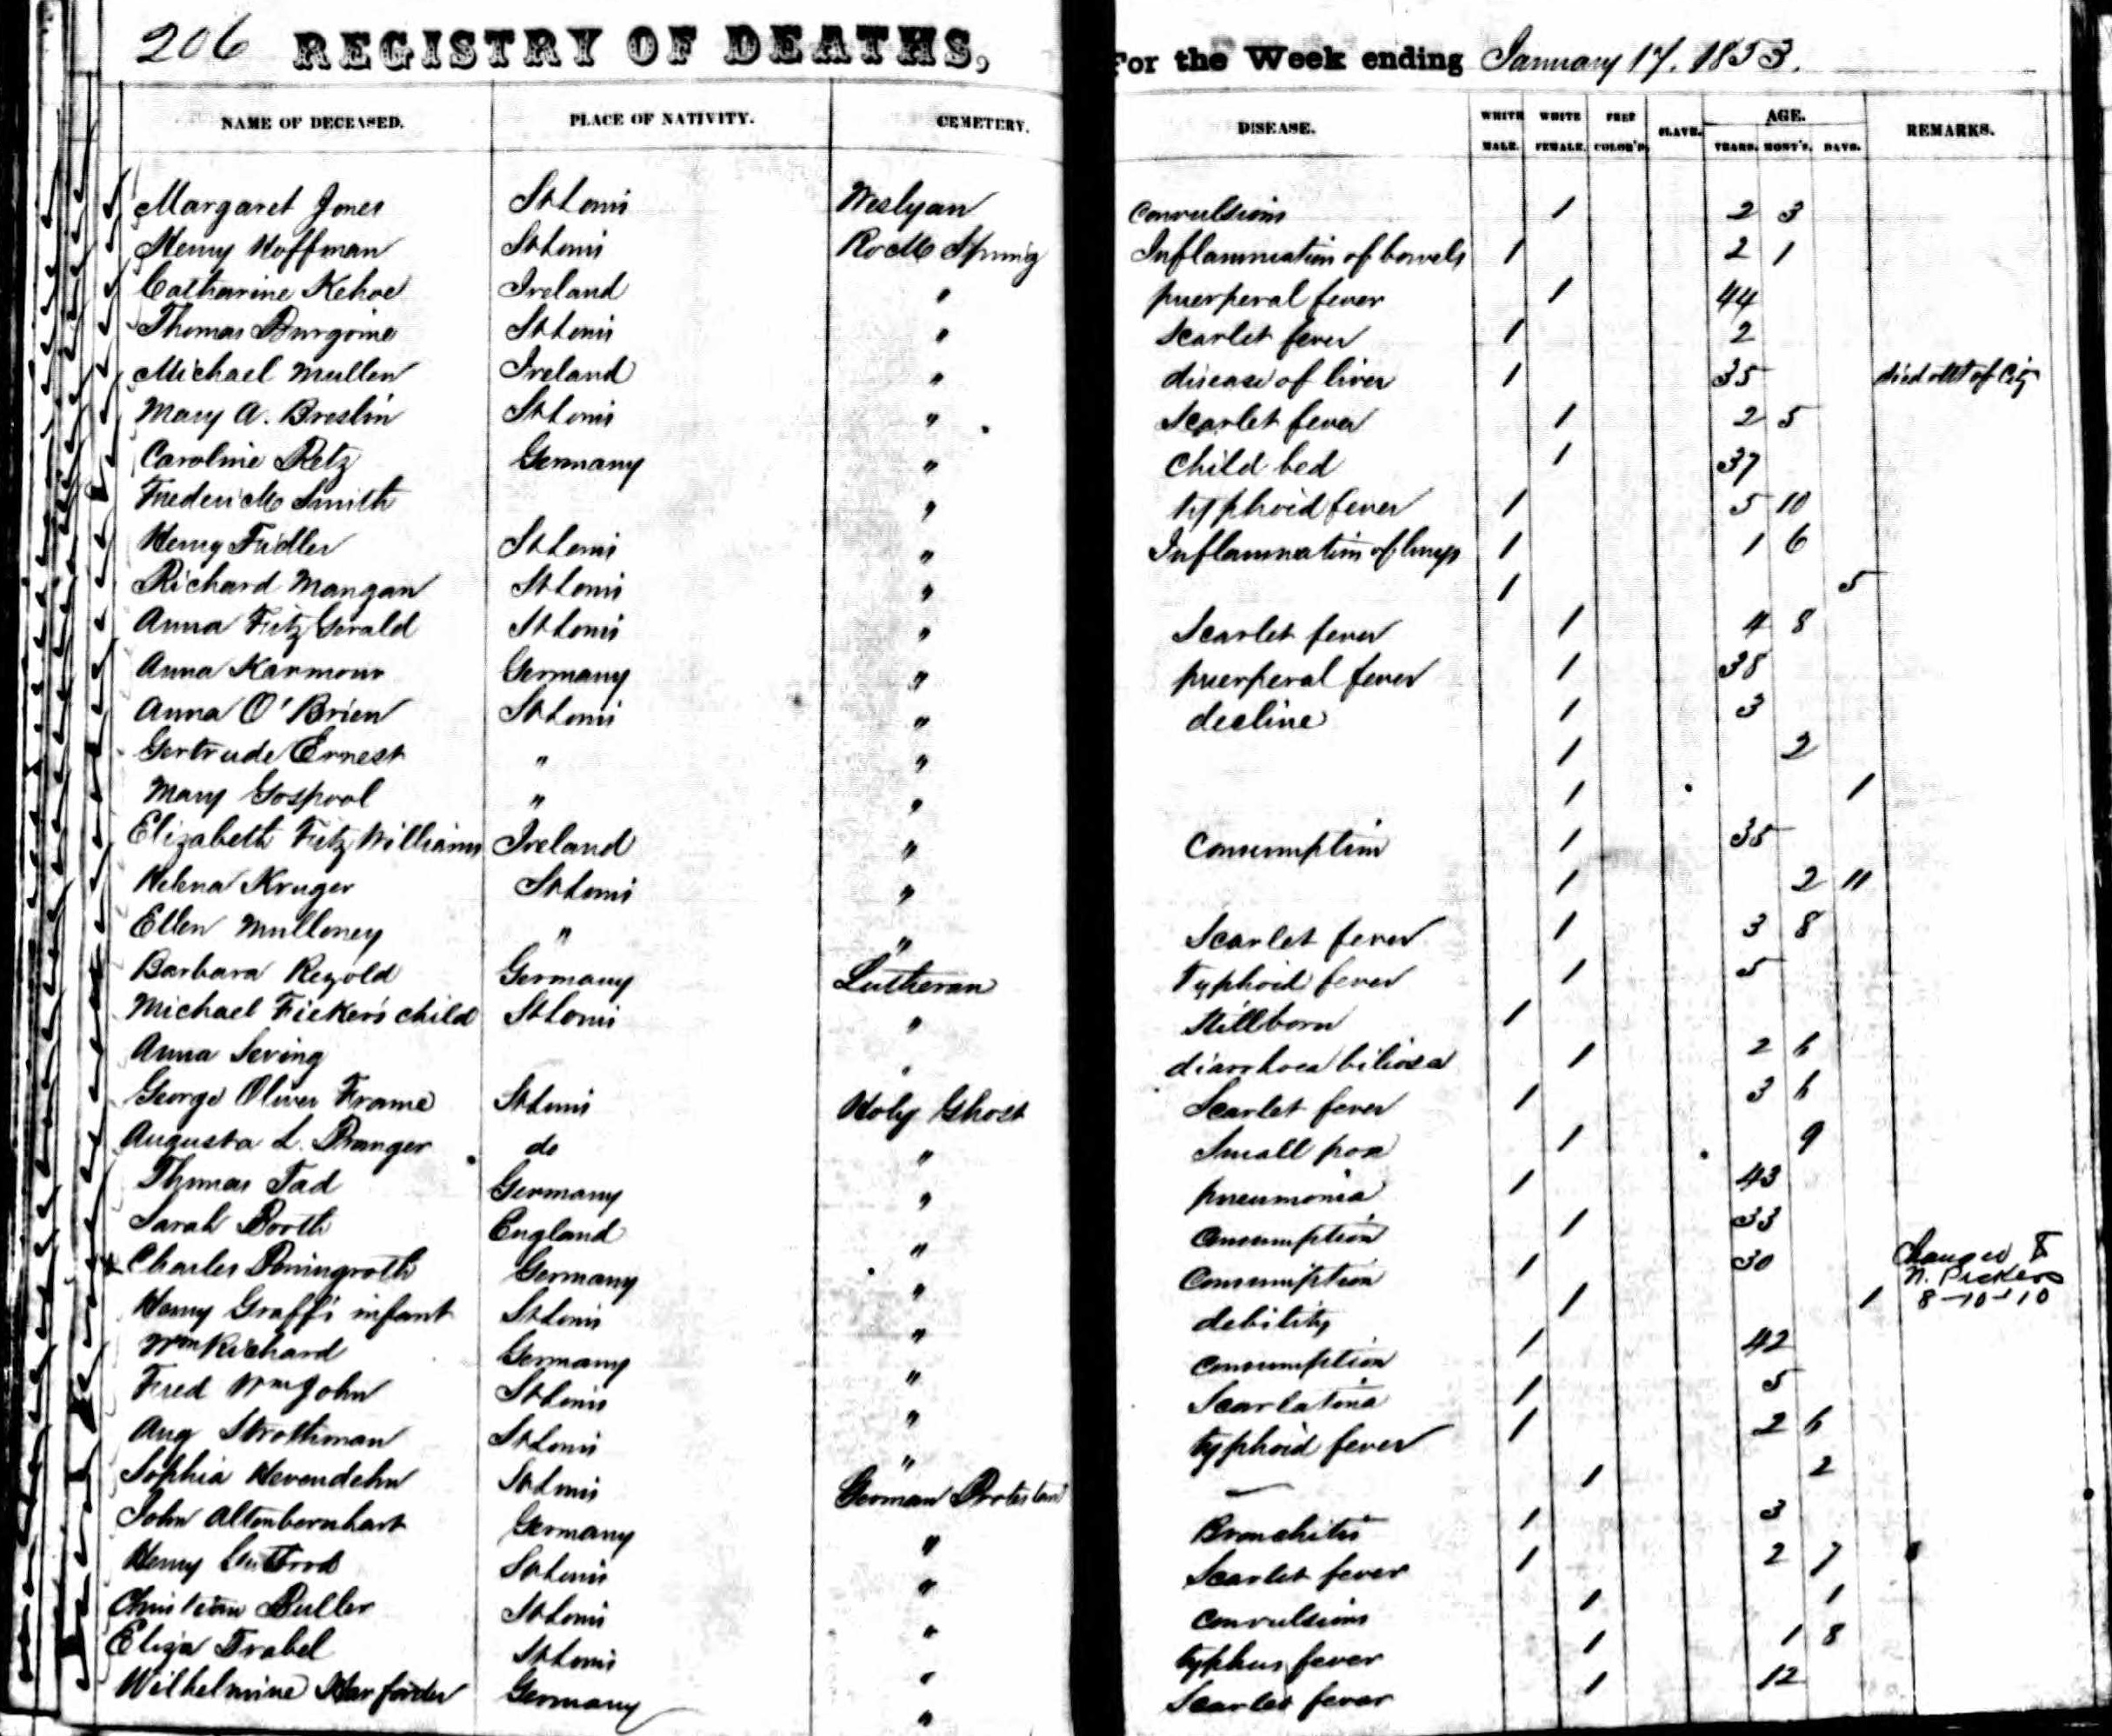 206 REGISTRY OF DEATHS, For the Week ending January 17. 1853.
NAME OF DECEASED. PLACE OF NATIVITY. CEMETERY. DISEASE. WHITE MALE. WHITE FEMALE. FREE COLOR'D. SLAVE. AGE. YEARS. MONT'S. DAYS. REMARKS.
Margaret Jones St Louis Weslyan Convulsions 1 2 3
Henry Hoffman St Louis Rock Spring Inflammation of bowels 1 2 1
Catharine Kehoe Ireland " puerperal fever 1 44
Thomas Burgoine St Louis " Scarlet fever 1 2
Michael Mullen Ireland " disease of liver 1 35 died out of City
Mary A. Breslin St Louis " Scarlet fever 1 2 5
Caroline Retz Germany " Child bed 1 37
Frederick Smith " typhoid fever 1 5 10
Henry Fidler St Louis " Inflammation of lungs 1 1 6
Richard Mangan St Louis " 1 5
Anna FitzGerald St Louis " Scarlet fever 1 4 8
Anna Karmour Germany " puerperal fever 1 38
Anna O'Brien St Louis " decline 1 3
Gertrude Ernest " " 1 2
Mary Gospool " " 1 1
Elizabeth FitzWilliams Ireland " Consumption 1 35
Helena Kruger St Louis " 1 2 11
Ellen Mulloney " " Scarlet fever 1 3 8
Barbara Rezold Germany Lutheran Typhoid fever 1 5
Michael Ficker's child St Louis " Stillborn 1
Anna Seving " diarrhoea biliosa 1 2 6
George Oliver Frame St Louis Holy Ghost Scarlet fever 1 3 6
Augusta L. Pranger do " Small pox 1 9
Thomas Tad Germany " pneumonia 1 43
Sarah Booth England " Consumption 1 33
Charles Poningroth Germany " Consumption 1 30 Changed to
N. Pickers
Henry Graff's infant St Louis " debility 1 1 8-10-10
Wm Richard Germany " Consumption 1 42
Fred Wm John St Louis " Scarlatina 1 5
Aug Strothman St Louis " typhoid fever 1 2 6
Sophia Hevendehn St Louis German Protestant — 1 2
John Altenbernhart Germany " Bronchitis 1 3
Henry St Louis " Scarlet fever 1 2 7
Christian Buller St Louis " Convulsions 1 1
Eliza Trabel St Louis " typhus fever 1 1 8
Wilhelmine Germany " Scarlet fever 1 12